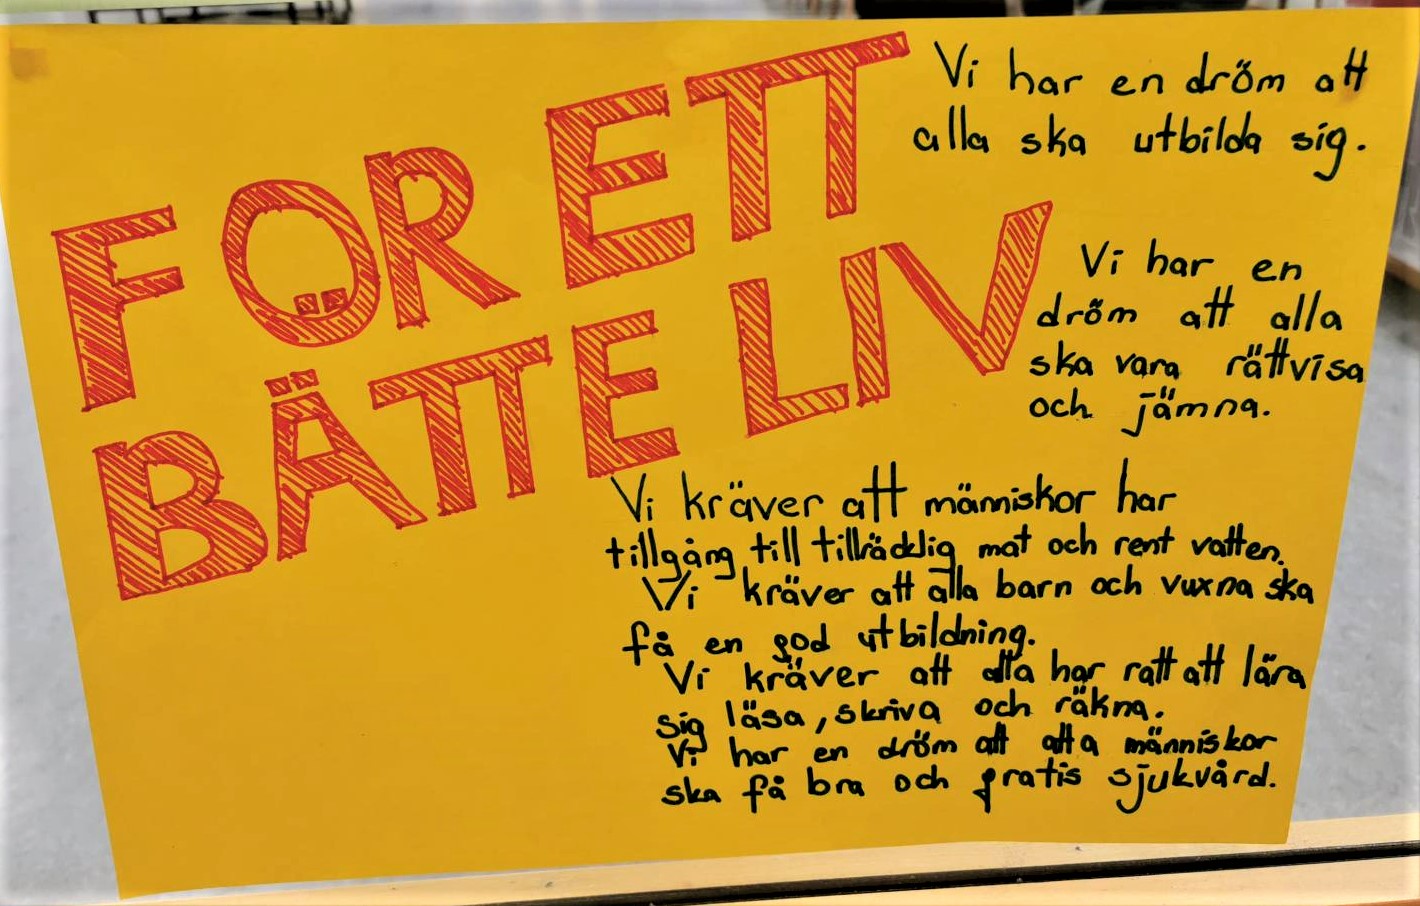 FÖR ETT
BÄTTE LIV
Vi har en dröm att
alla ska utbilda sig.
Vi har en
dröm att alla
ska vara rättvisa
och jämna.
Vi kräver att människor har
tillgång till tillräcklig mat och rent vatten.
Vi kräver att alla barn och vuxna ska
få en god utbildning.
Vi kräver att alla har ratt att lära
sig läsa, skriva och räkna.
Vi har en dröm att alla människor
ska få bra och gratis sjukvård.